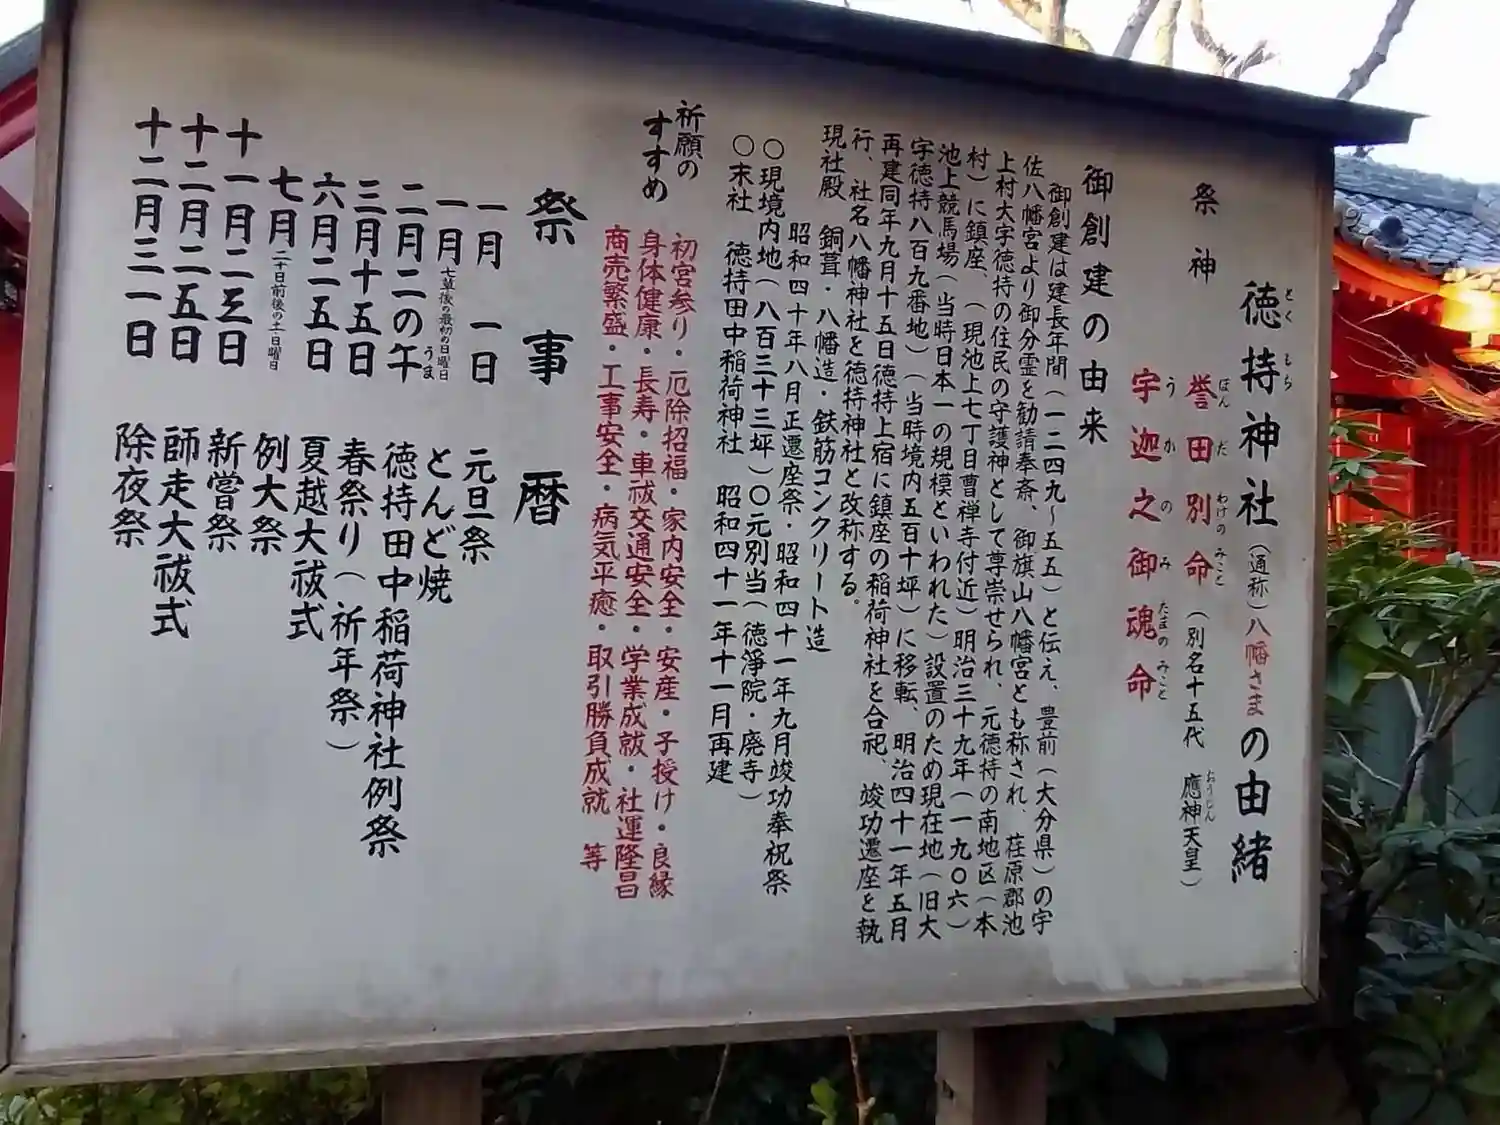 徳持神社(通称)八幡さまの由緒
とくもち
祭神
誉田別命(別名十五代 應神天皇)
ほんだわけのみこと
おうじん
宇迦之御魂命
うかのみたまのみこと
御創建の由来
御創建は建長年間(一二四九〜五五)と伝え、豊前(大分県)の宇
佐八幡宮より御分霊を勧請奉斎、御旗山八幡宮とも称され、荏原郡池
上村大字徳持の住民の守護神として尊崇せられ、元徳持の南地区(本
村)に鎮座、(現池上七丁目曹禅寺付近)明治三十九年(一九〇六)
池上競馬場(当時日本一の規模といわれた)設置のため現在地(旧大
字徳持八百九番地)(当時境内五百十坪)に移転、明治四十一年五月
再建同年九月十五日徳持上宿に鎮座の稲荷神社を合祀、竣功遷座を執
行、社名八幡神社を徳持神社と改称する。
現社殿 銅葺・八幡造・鉄筋コンクリート造
昭和四十年八月正遷座祭・昭和四十一年九月竣功奉祝祭
〇現境内地(八百三十三坪)〇元別当(徳淨院・廃寺)
〇末社 徳持田中稲荷神社 昭和四十一年十一月再建
祈願のすすめ
初宮参り・厄除招福・家内安全・安産・子授け・良縁
身体健康・長寿・車祓交通安全・学業成就・社運隆昌
商売繁盛・工事安全・病気平癒・取引勝負成就 等
祭事暦
一月 一日 元旦祭
一月 七草後の最初の日曜日 とんど焼
二月二の午 徳持田中稲荷神社例祭
うま
三月十五日 春祭り(祈年祭)
六月二五日 夏越大祓式
七月 二十日前後の土・日曜日 例大祭
十一月二三日 新嘗祭
十二月二五日 師走大祓式
十二月三一日 除夜祭